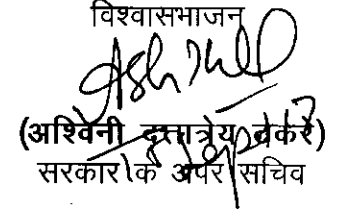 विश्वासभाजन
(अश्विनी दत्तात्रेय ठकरे)
सरकार के अपर सचिव